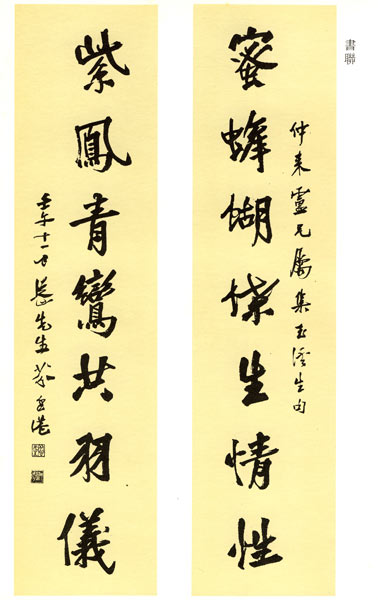 書聯
仲来靈兄屬集玉溪生句
蜜蜂蝴蝶生情性
紫鳳青鸞共羽儀
壬午十一月 先生